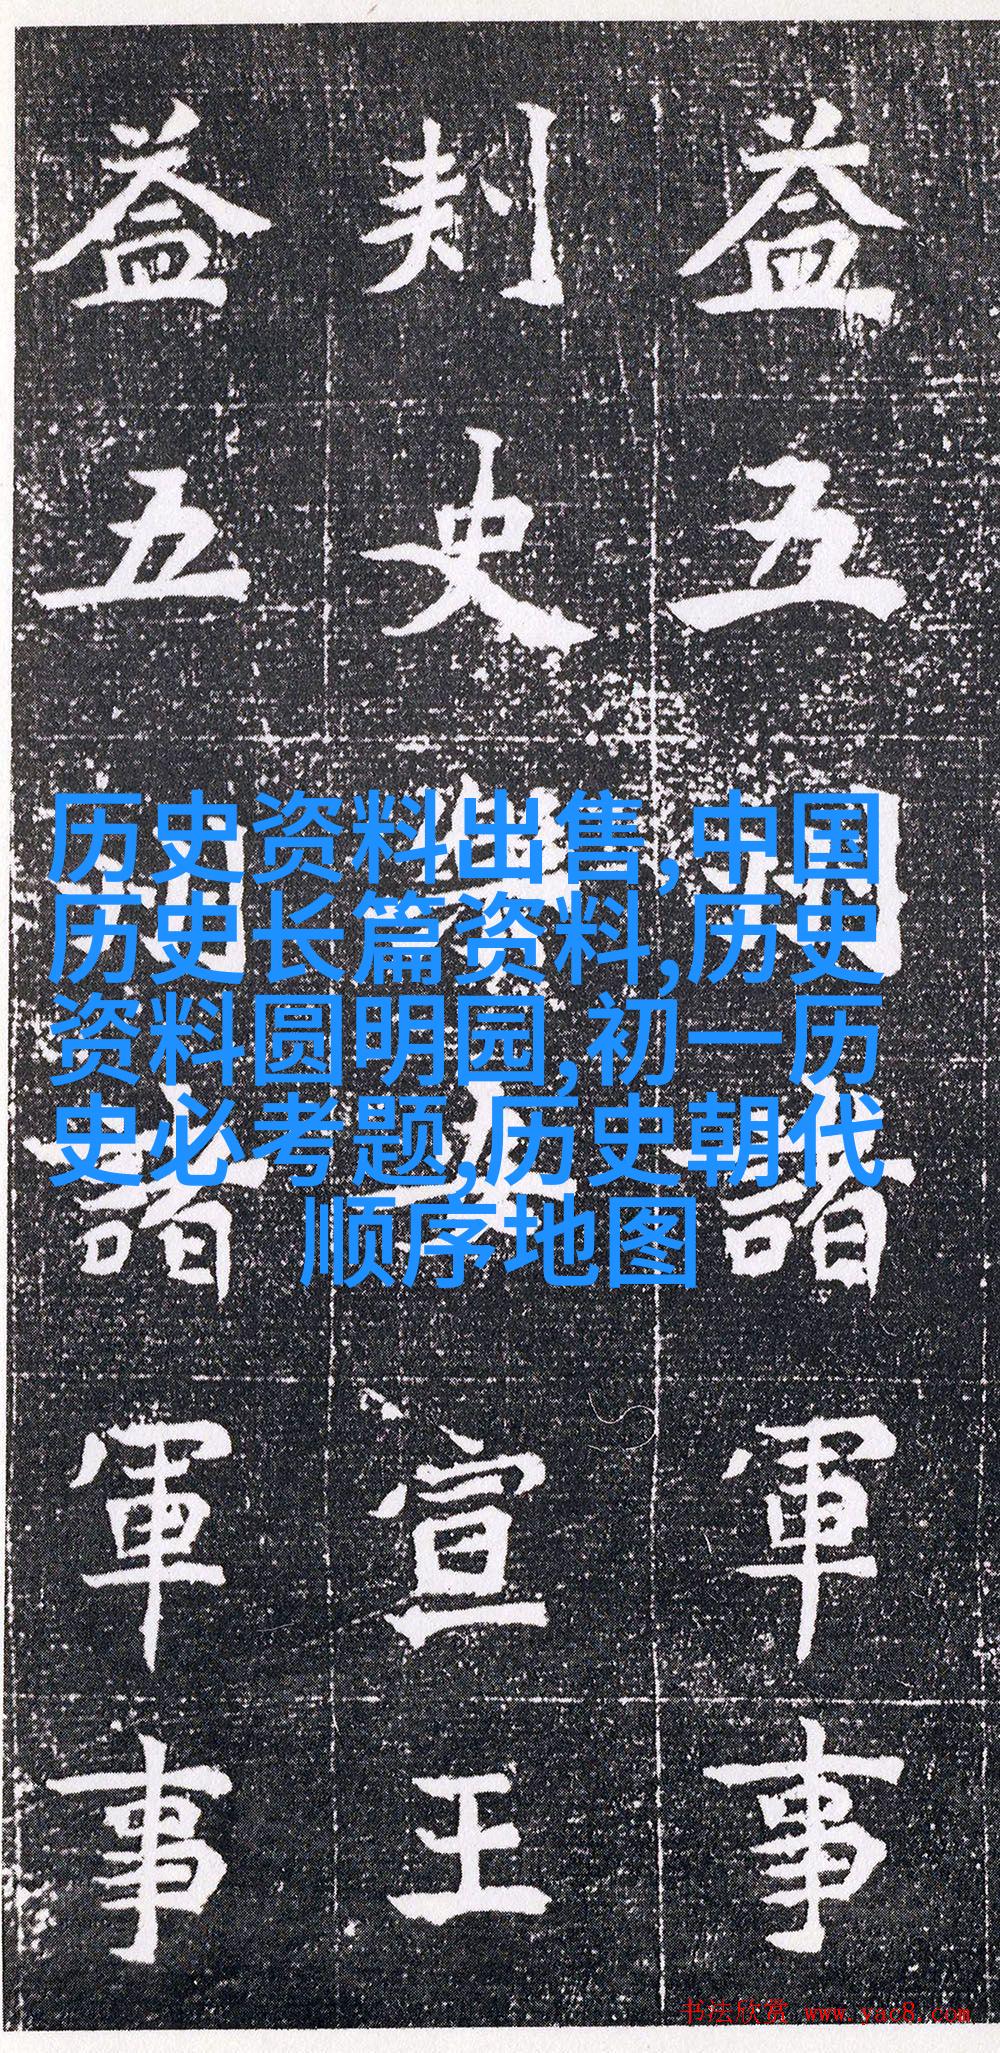 益五諸軍事
刾史宣王
益五諸軍事
历史资料出售,中国
历史长篇资料,历史
资料圆明园,初一历
史必考题,历史朝代
顺序地图
书法欣赏 www.yac8.com